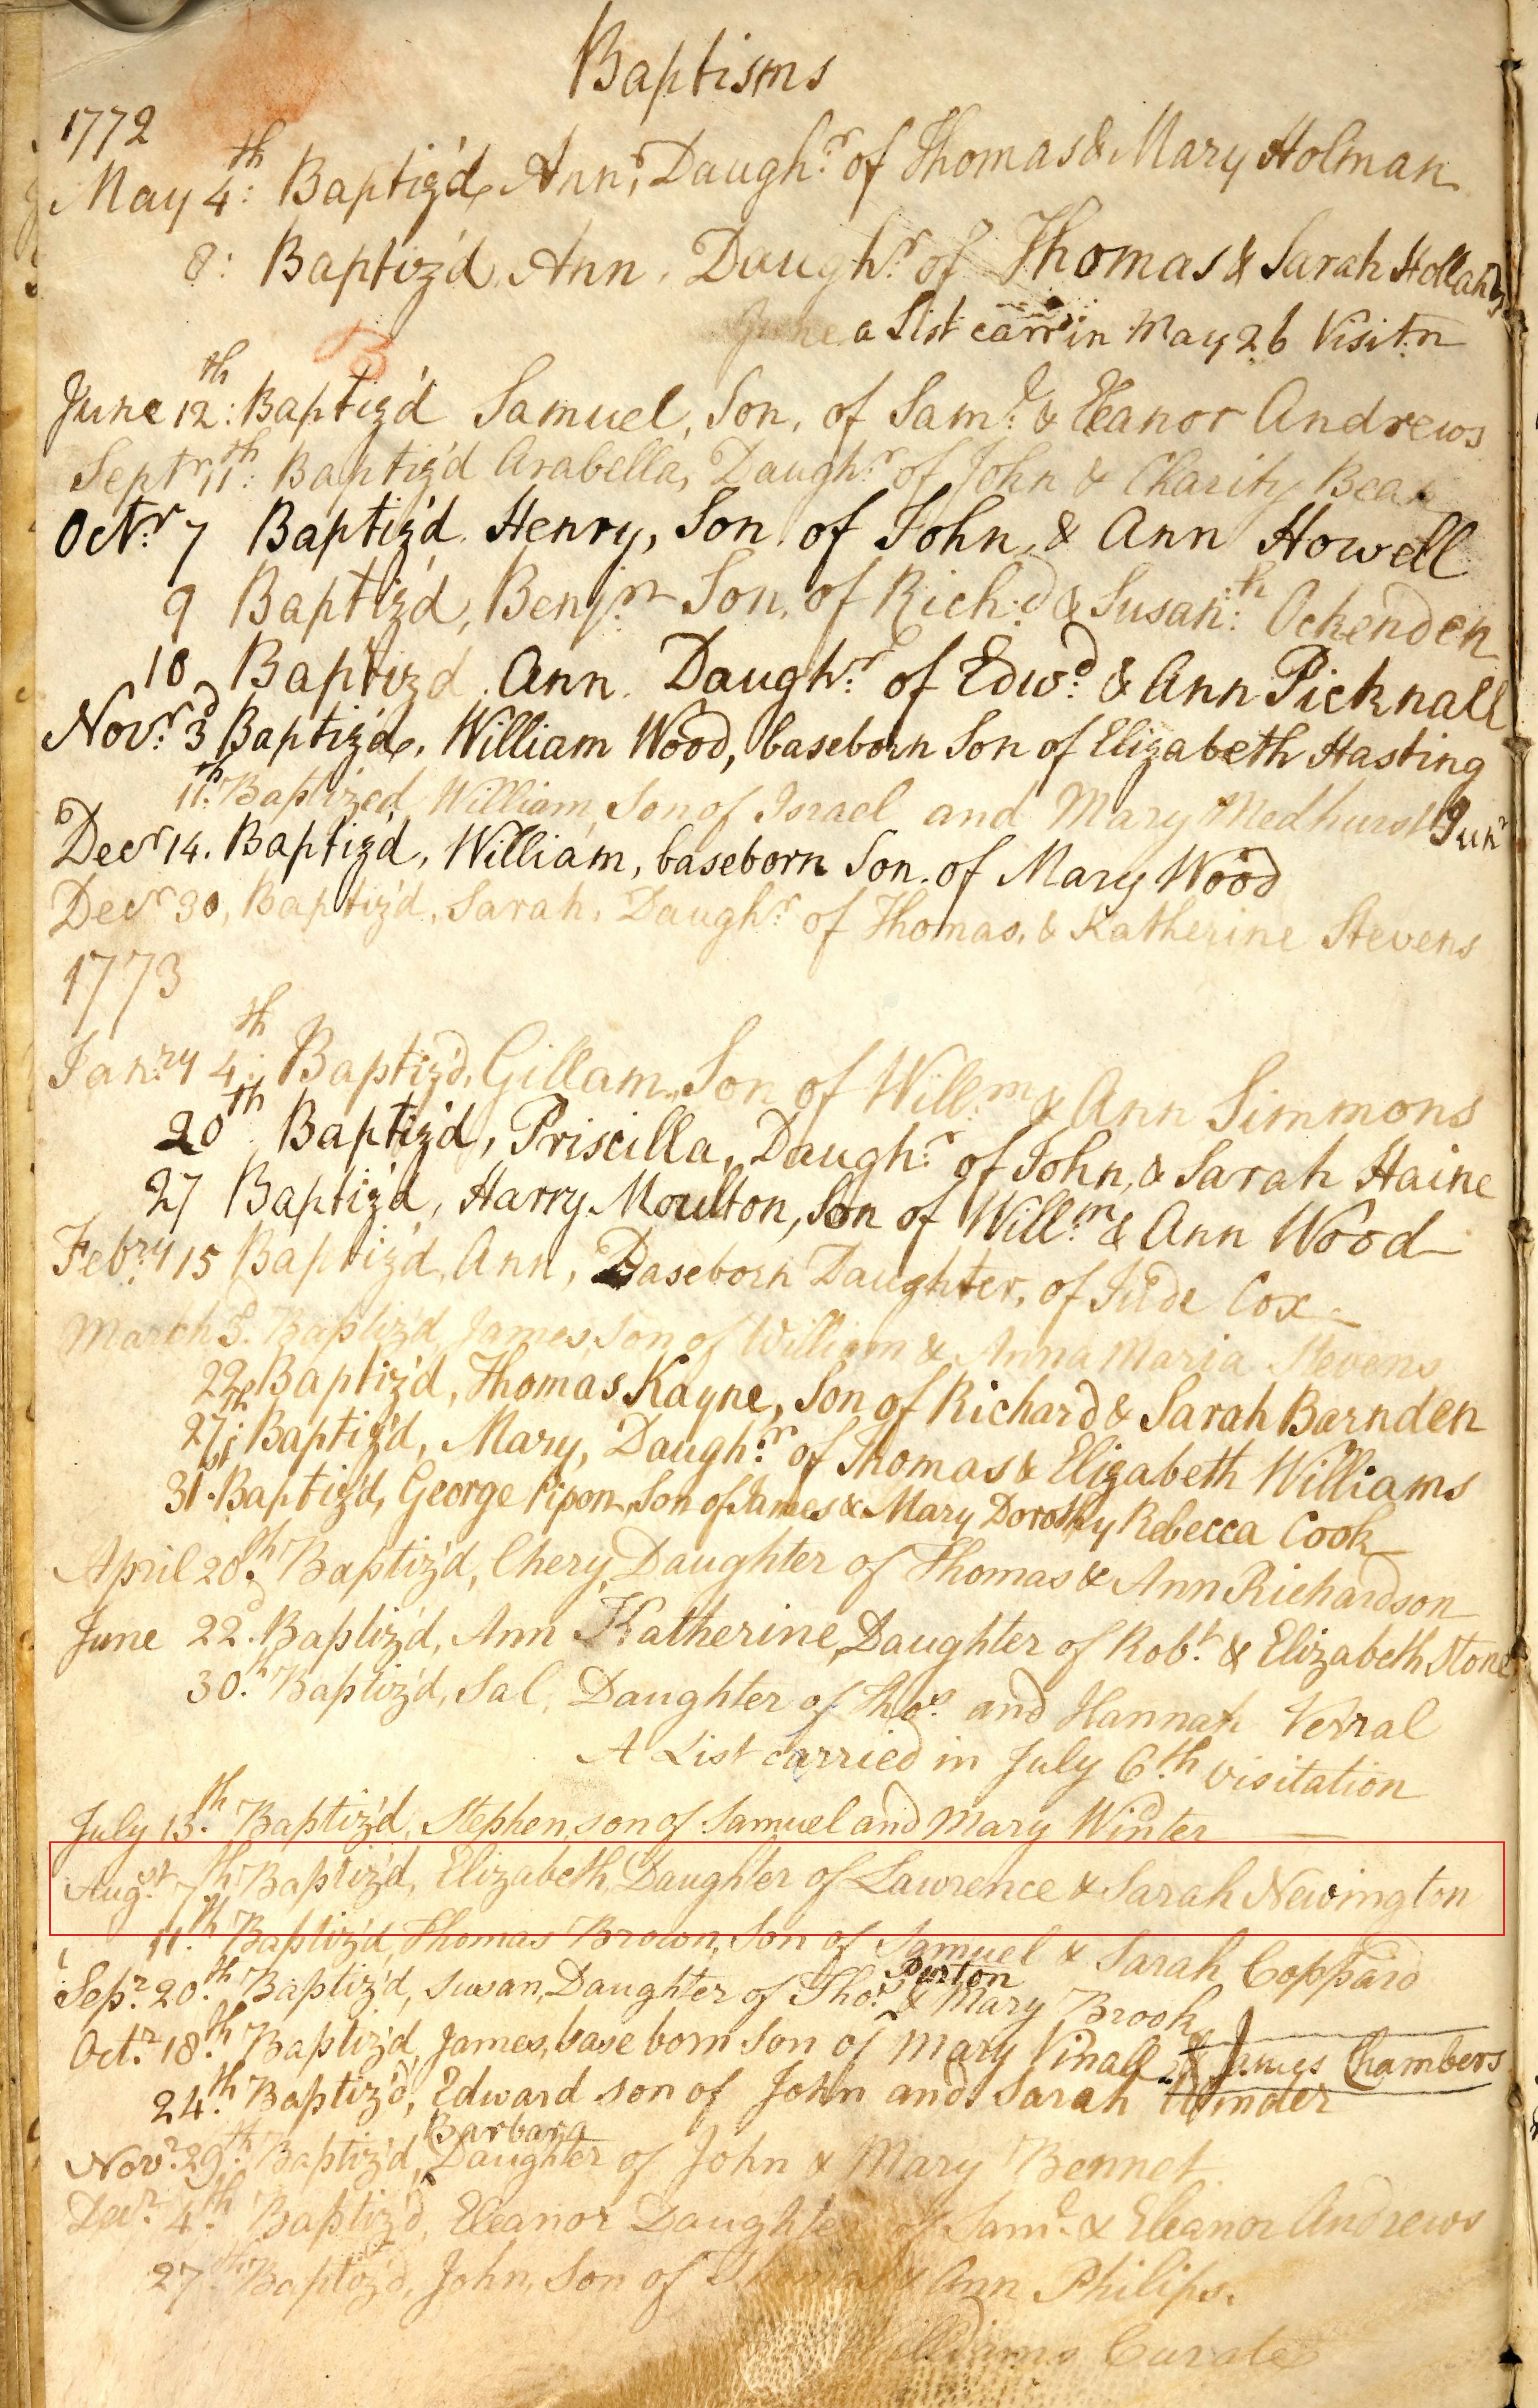 Baptisms
1772
May 4th: Baptiz'd, Ann, Daughr. of Thomas & Mary Holman
8: Baptiz'd, Ann, Daughr. of Thomas & Sarah Holland
June a List carr'in May 26 Visit.n
B
June 12th: Baptiz'd Samuel, Son, of Saml. & Eleanor Andrews
Septr 11th: Baptiz'd Arabella, Daughr. of John & Charity
Octr. 7 Baptiz'd. Henry, Son, of John, & Ann Howell
9 Baptiz'd, Benjn. Son, of Richd. & Susanh: Ockenden
10 Baptiz'd. Ann. Daughr. of Edwd. & Ann Picknall
Novr. 3d Baptiz'd, William Wood, baseborn Son of Elizabeth Hasting
11th. Baptized, William, Son of Israel and Mary Medhurst Junr
Decr 14. Baptiz'd, William, baseborn Son. of Mary Wood
Decr 30, Baptiz'd, Sarah, Daughr. of Thomas, & Katherine Stevens
1773
Janry 4th: Baptiz'd, Gillam, Son of Willm. & Ann Simmons
20th Baptiz'd, Priscilla, Daughr. of John, & Sarah Haine
27 Baptiz'd, Harry Moulton, Son of Willm. & Ann Wood
Febry 15 Baptiz'd, Ann, Baseborn Daughter, of Jude Cox
March 3d. Baptiz'd, James, Son of William & Anna Maria Stevens
22d Baptiz'd, Thomas Kayne, Son of Richard & Sarah Barnden
27th: Baptiz'd, Mary, Daughr. of Thomas & Elizabeth Williams
31st. Baptiz'd, George Pipon, Son of James & Mary Dorothy Rebecca Cook
April 20th. Baptiz'd, Chery, Daughter of Thomas & Ann Richardson
June 22d. Baptiz'd, Ann Katherine, Daughter of Robt. & Elizabeth Stone
30th. Baptiz'd, Sal, Daughter of Thos. and Hannah Verral
A List carried in July 6th. visitation
July 13th. Baptiz'd, Stephen, son of Samuel and Mary Winter
Augst. 7th. Baptiz'd, Elizabeth, Daughter of Lawrence & Sarah Newington
11th. Baptiz'd, Thomas Brown, Son of Samuel & Sarah Coppard
Burton
Sepr. 20th. Baptiz'd, Susan, Daughter of Thos. & Mary Brook
Octr. 18th. Baptiz'd, James, base born Son of Mary Vinall & James Chambers
24th. Baptiz'd, Edward son of John and Sarah
Barbara
Novr. 29th. Baptiz'd, ^ Daughter of John & Mary Bennet
Decr. 4th. Baptiz'd, Eleanor Daughter of Saml. & Eleanor Andrews
27th. Baptiz'd, John, Son of & Ann Philips.
Williams Curate